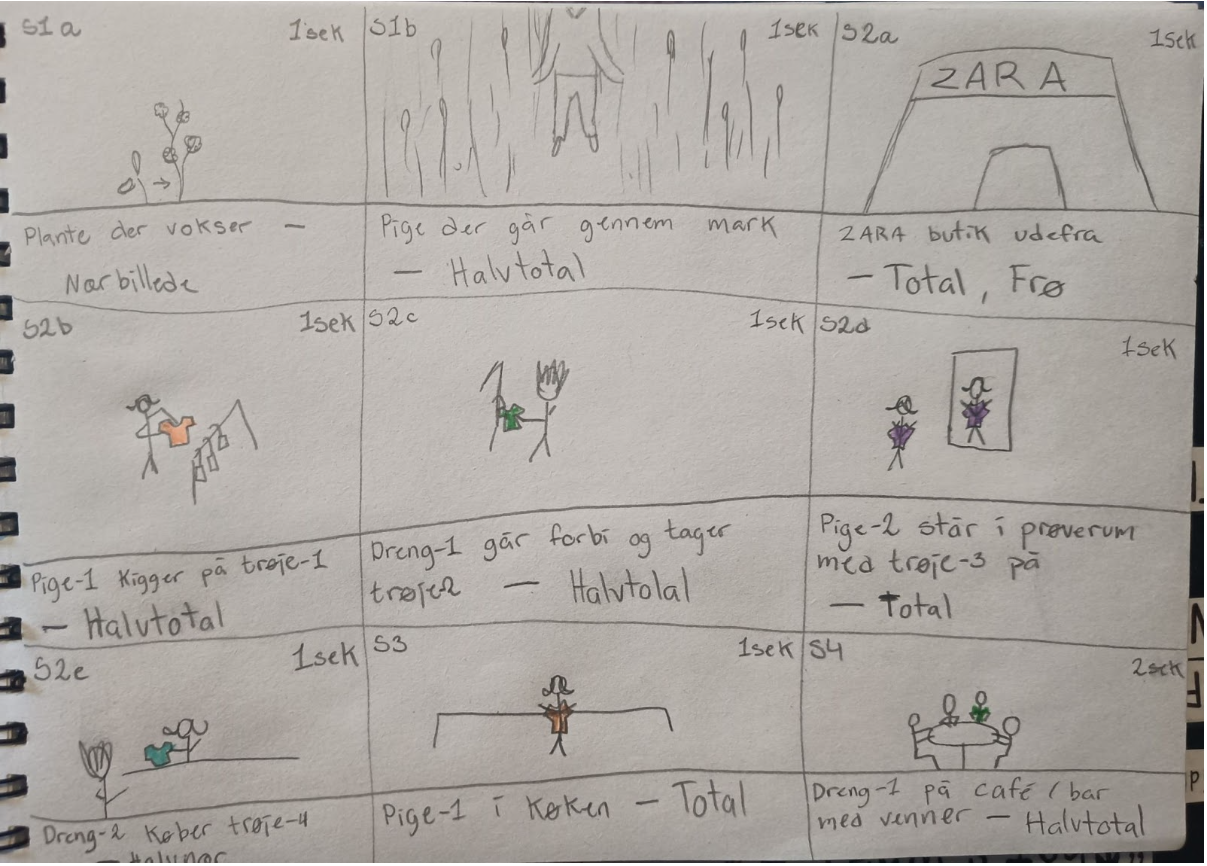 S1a
1sek
Plante der vokser —
Nærbillede
S1b
1sek
Pige der går gennem mark
— Halvtotal
S2a
1sek
ZARA
ZARA butik udefra
— Total, Frø
S2b
1sek
Pige-1 Kigger på trøje-1
— Halvtotal
S2c
1sek
Dreng-1 går forbi og tager
trøje-2 — Halvtolal
S2d
1sek
Pige-2 står i prøverum
med trøje-3 på
— Total
S2e
1sek
Dreng-2 Køber trøje-4
— Halvnær
S3
1sek
Pige-1 i Køken — Total
S4
2sek
Dreng-1 på café / bar
med venner — Halvtotal